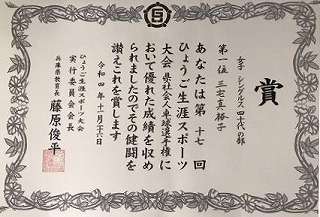 賞
女子 シングルス 四十代の部
第一位 三宅真裕子
あなたは第 十七 回
ひょうご生涯スポーツ
大会 県社会人卓球選手権に
おいて優れた成績を収め
られましたのでその健闘を
讃えこれを賞します
令和四年十一月二十六日
ひょうご生涯スポーツ大会
実行委員会会長
兵庫県教育長 藤原俊平